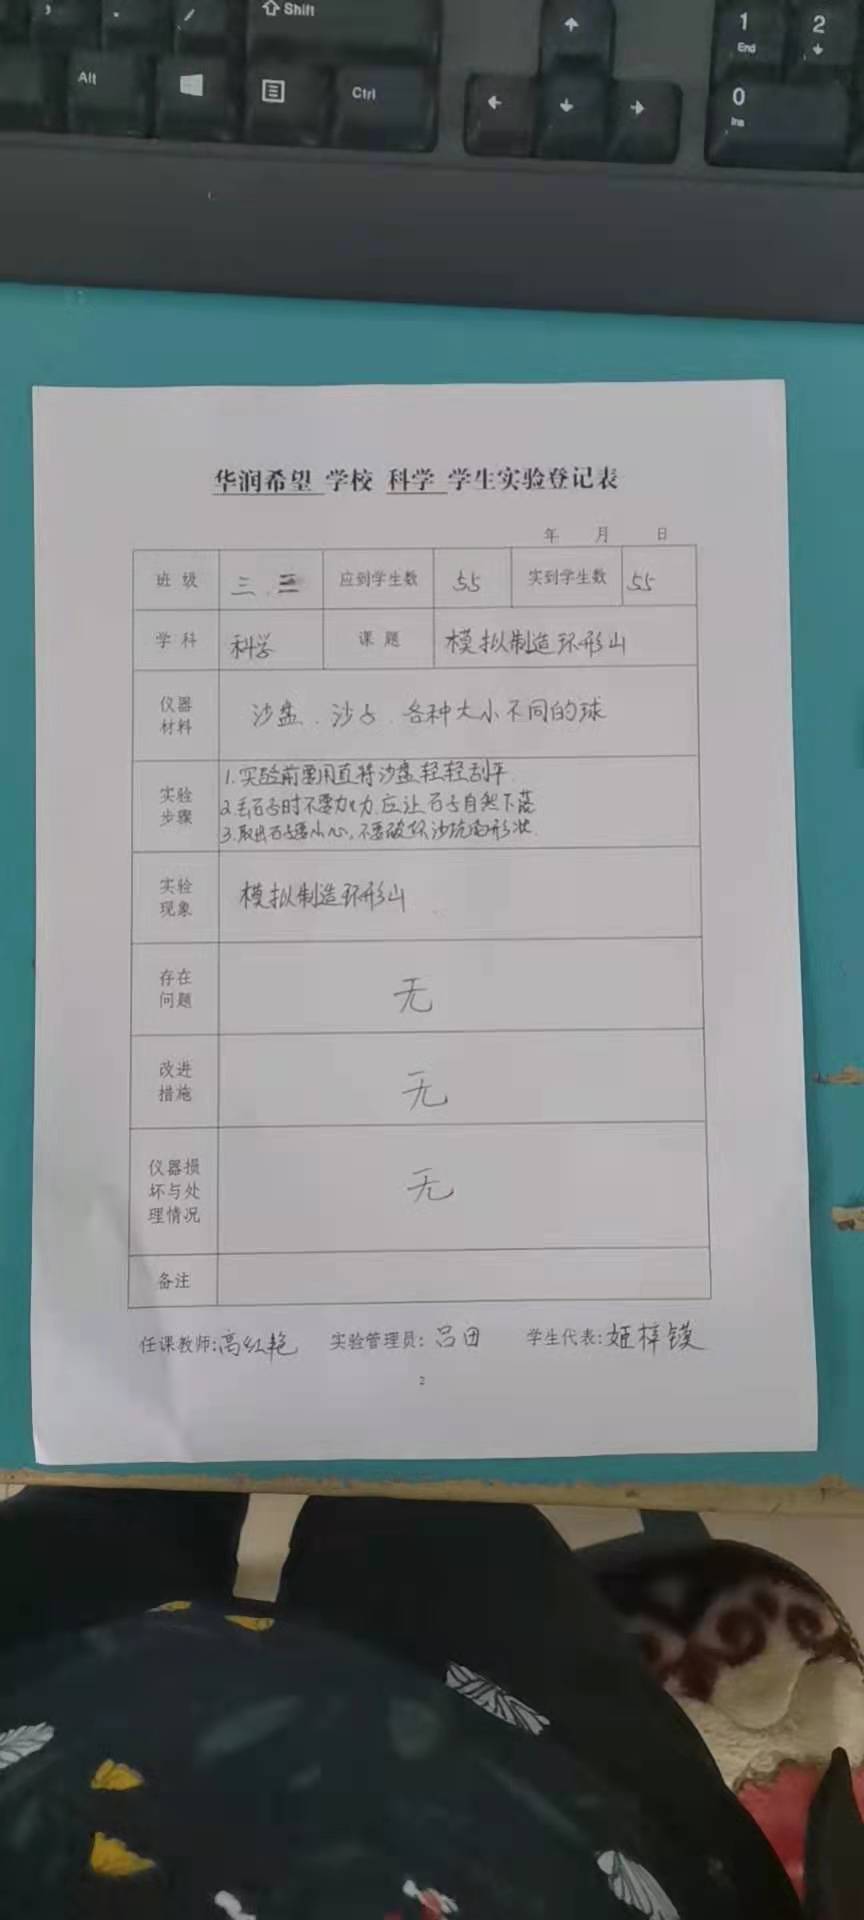 Shift
1
End
2
Alt
Ctrl
0
Ins
华润希望 学校 科学 学生实验登记表
年 月 日
班级 三.三 应到学生数 55 实到学生数 55
学科 科学 课题 模拟制造环形山
仪器材料 沙盘、沙子、各种大小不同的球
实验步骤 1.实验前要用直将沙盘轻轻刮平
2.丢石子时不要加力,应让石子自然下落
3.取出石子要小心,不要破坏沙坑的形状
实验现象 模拟制造环形山
存在问题 无
改进措施 无
仪器损坏与处理情况 无
备注
任课教师:高红艳 实验管理员:吕田 学生代表:姬梓镆
2